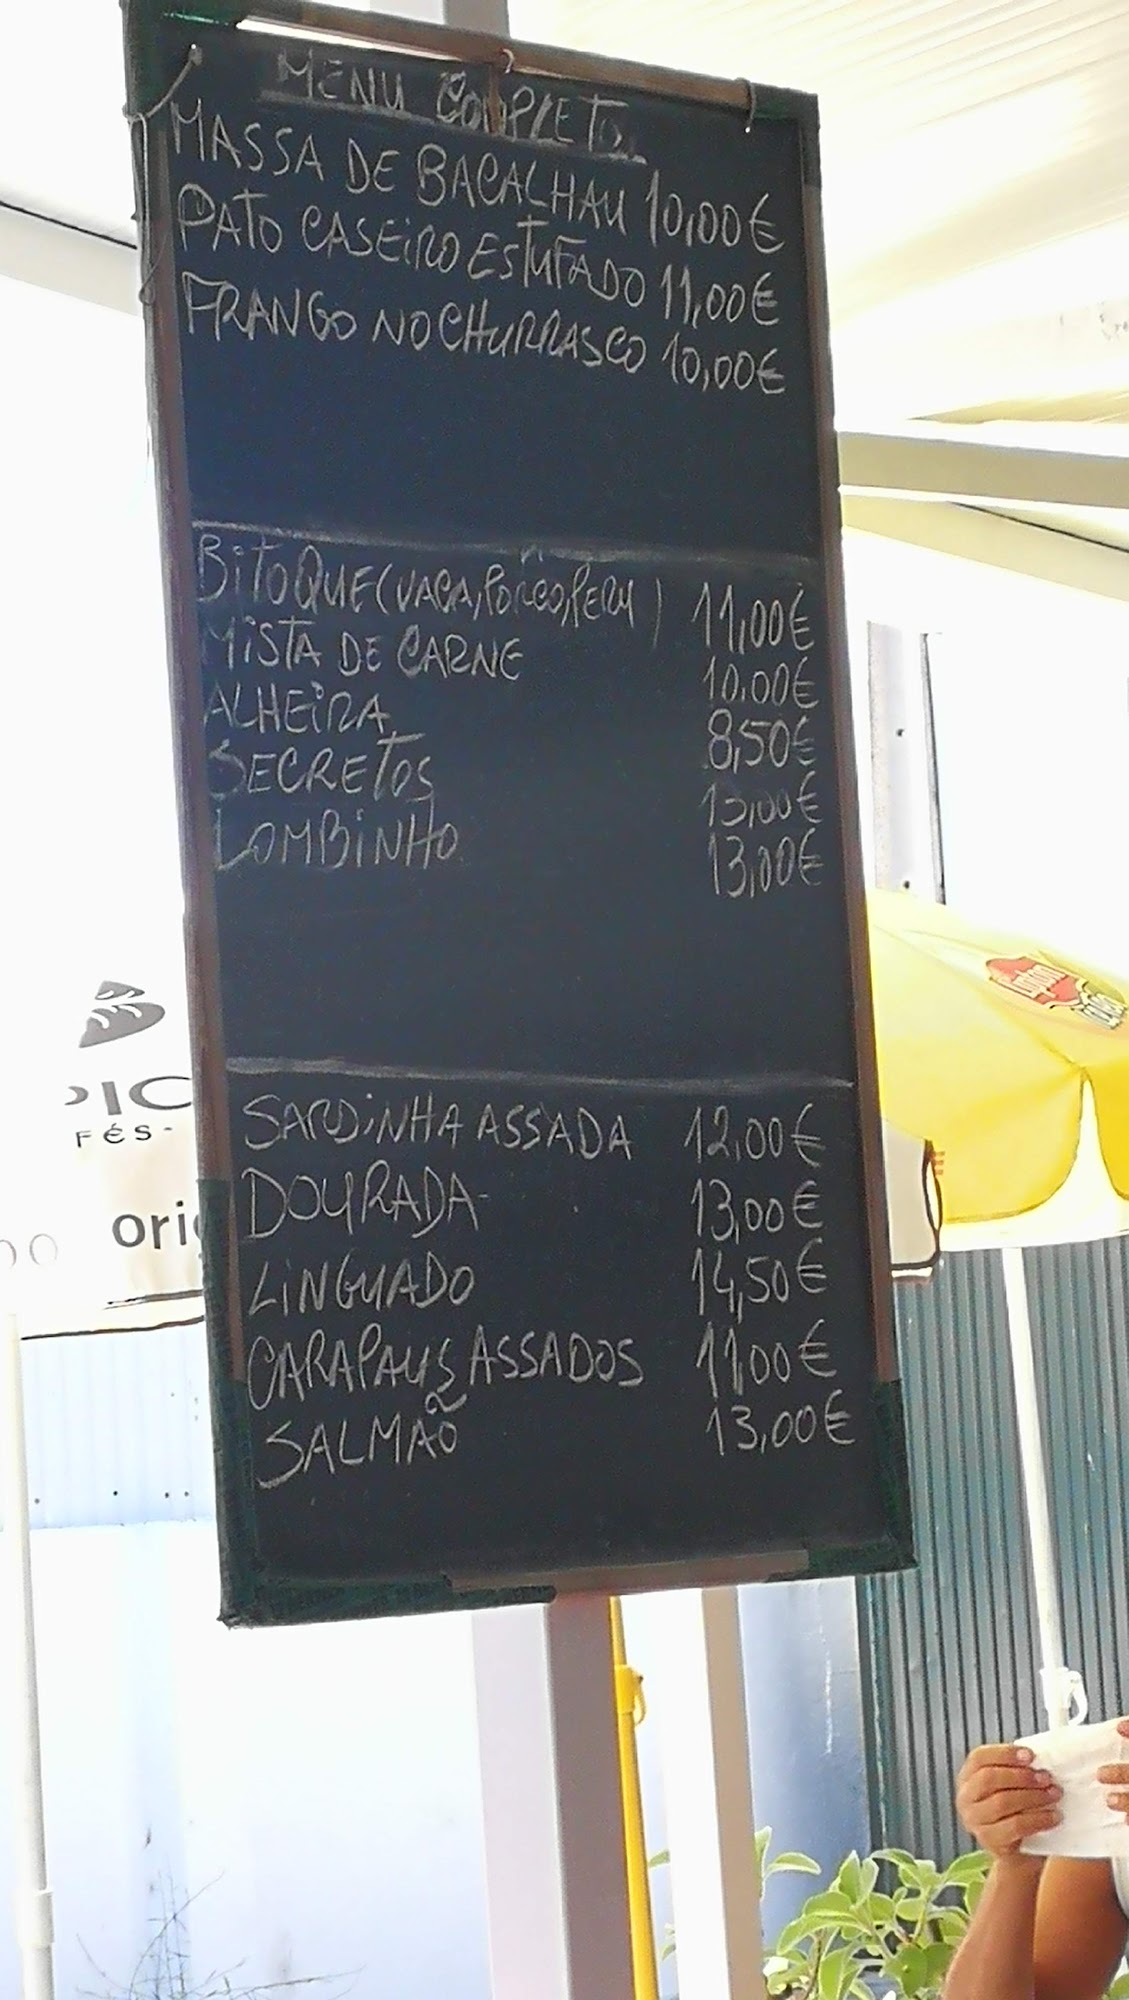 MENU COMPLETO
MASSA DE BACALHAU 10,00€
PATO CASEIRO ESTUFADO 11,00€
FRANGO NO CHURRASCO 10,00€
BITOQUE (VACA, PORCO, PERU) 11,00€
MISTA DE CARNE 10.00€
ALHEIRA 8,50€
SECRETOS 13,00€
LOMBINHO 13,00€
SARDINHA ASSADA 12,00€
DOURADA 13,00€
LINGUADO 14,50€
CARAPAUS ASSADOS 11,00€
SALMÃO 13,00€
PIC
FÉS-
orig
Lipton